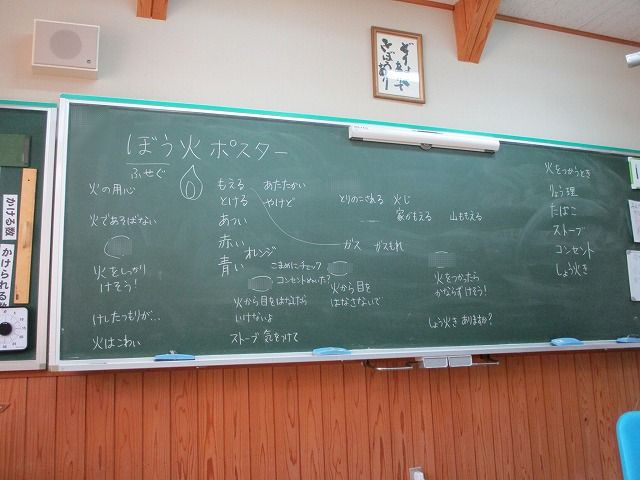 ぼう火ポスター
ふせぐ
火の用心
火であそばない
火をしっかり
けそう!
けしたつもりが…
火はこわい
もえる あたたかい
とける やけど
あつい
赤い
オレンジ
青い
こまめにチェック
コンセントぬいた?
火から目をはなしたら
いけないよ
ストーブ 気をつけて
とりのこされる 火じ
家がもえる 山ももえる
ガス ガスもれ
火から目を
はなさないで
火をつかったら
かならずけそう!
しょう火き ありますか?
火をつかうとき
りょう理
たばこ
ストーブ
コンセント
しょう火き
かける数
かけられる数